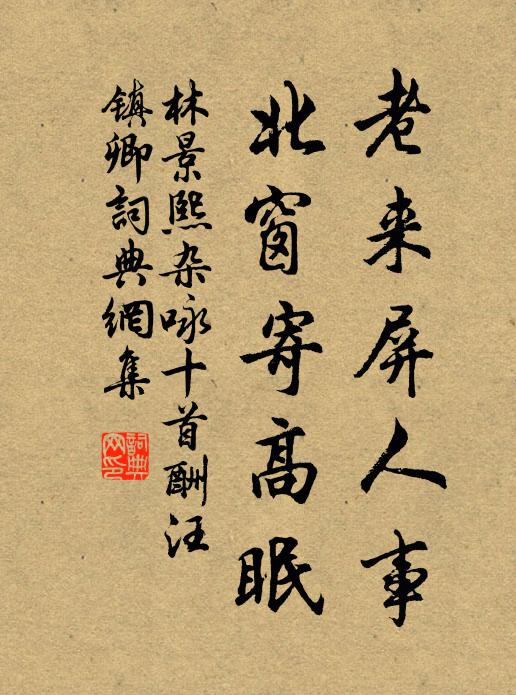 老来屏人事
北窗寄高眠
林景熙杂咏十首酬汪
镇卿詞典網集
詞典
网印